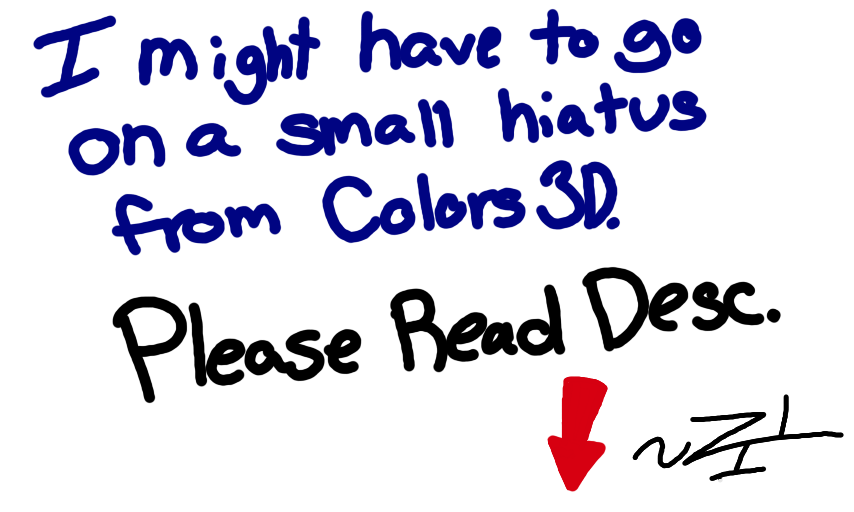 I might have to go
on a small hiatus
from Colors3D.
Please Read Desc.